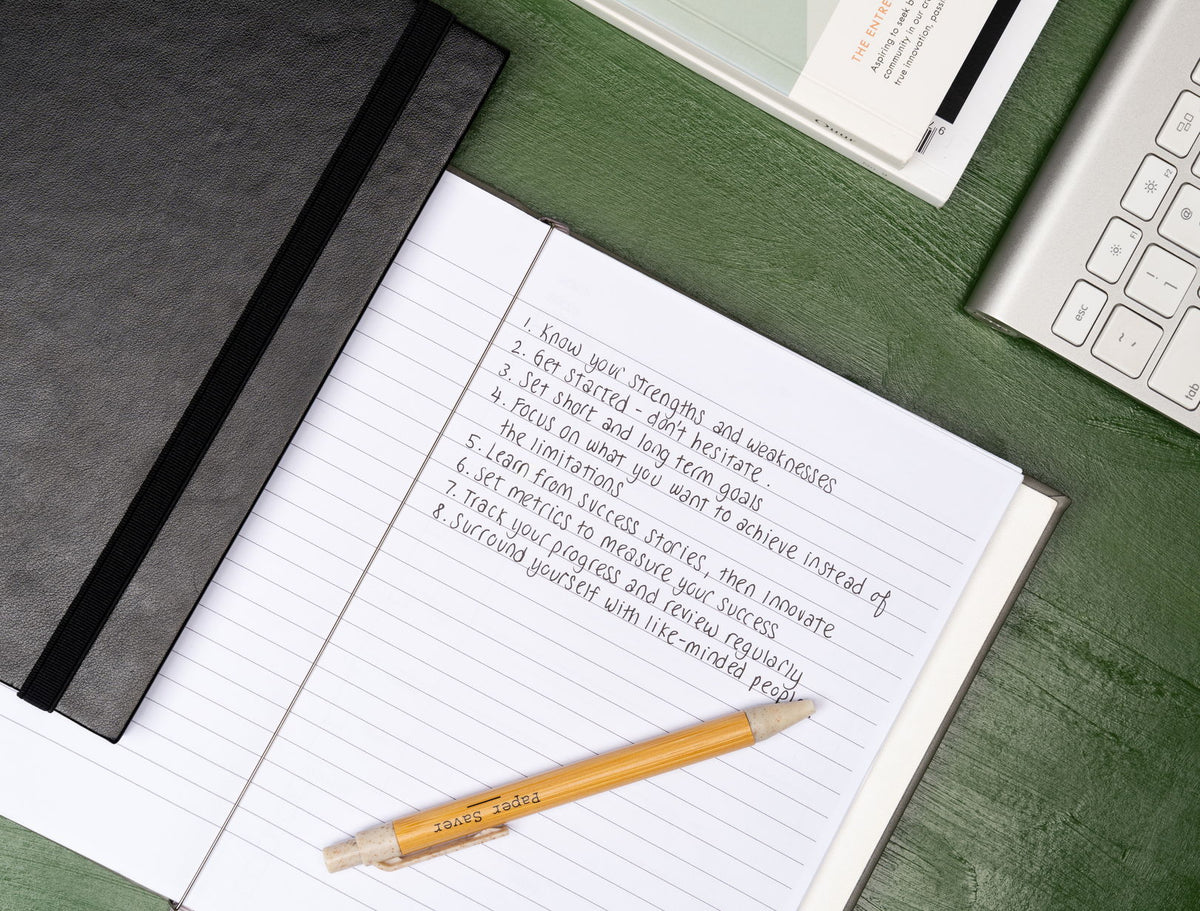 THE ENTRE
Aspiring to seek b
community in our cre
true innovation, passi
6
F2
F1
@
esc
tab
1. Know your strengths and weaknesses
2. Get started - don't hesitate.
3. Set short and long term goals
4. Focus on what you want to achieve instead of
the limitations
5. Learn from success stories, then innovate
6. Set metrics to measure your success
7. Track your progress and review regularly
8. Surround yourself with like-minded people
Paper Saver